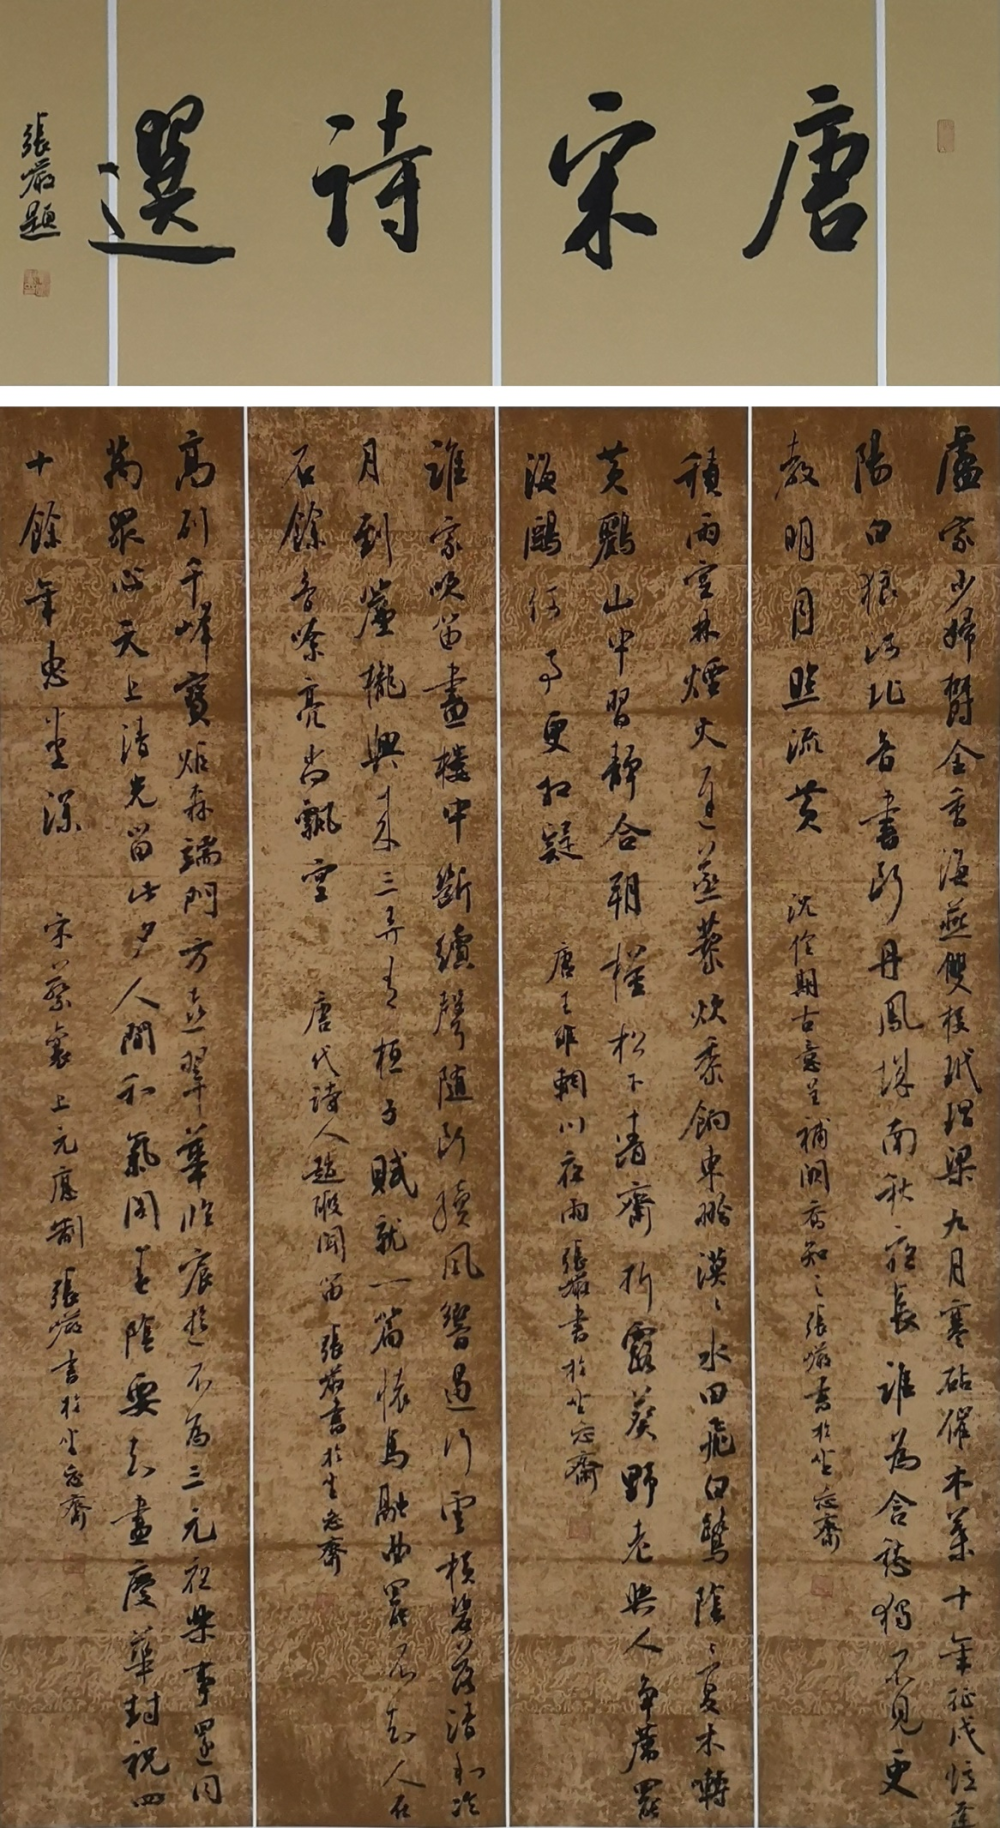 唐宋詩選
張嚴題
盧家少婦鬱金香海燕雙棲玳瑁梁九月寒砧催木葉十年征戍憶遼
陽白狼河北音書斷丹鳳城南秋夜長誰為含愁獨不見更
教明月照流黃 沈佺期古意呈補闕喬知之張嚴書於坐忘齋
積雨空林煙火遲蒸藜炊黍餉東菑漠〻水田飛白鷺陰〻夏木囀
黃鸝山中習靜合朝槿松下清齋折露葵野老與人爭席罷
海鷗何事更相疑 唐王維輞川夜雨張嚴書於坐忘齋
誰家吹笛畫樓中斷續聲隨斷續風響遏行雲橫碧落清和冷
月到簾櫳興來三弄有桓子賦就一篇懷馬融曲罷不知人在
否餘音嘹亮尚飄空 唐代詩人趙嘏聞笛張嚴書於坐忘齋
高列千峰寶炬森端門方喜翠華臨宸遊不為三元夜樂事還同
萬眾心天上清光留此夕人間和氣閣春陰要知盡慶華封祝四
十餘年惠愛深 宋蔡襄上元應制張嚴書於坐忘齋